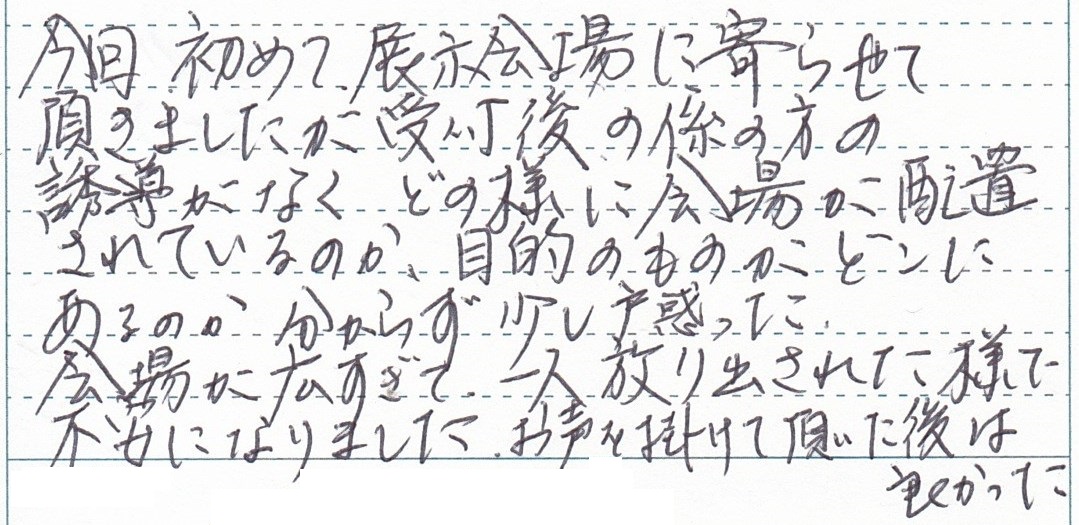 今回、初めて、展示会場に寄らせて
頂きましたが受付後の係の方の
誘導がなく どの様に会場が配置
されているのか、目的のものがどこに
あるのか 分からず 少し戸惑った。
会場が広すぎて、一人放り出された様で
不安になりました。お声を掛けて頂いた後は
良かった